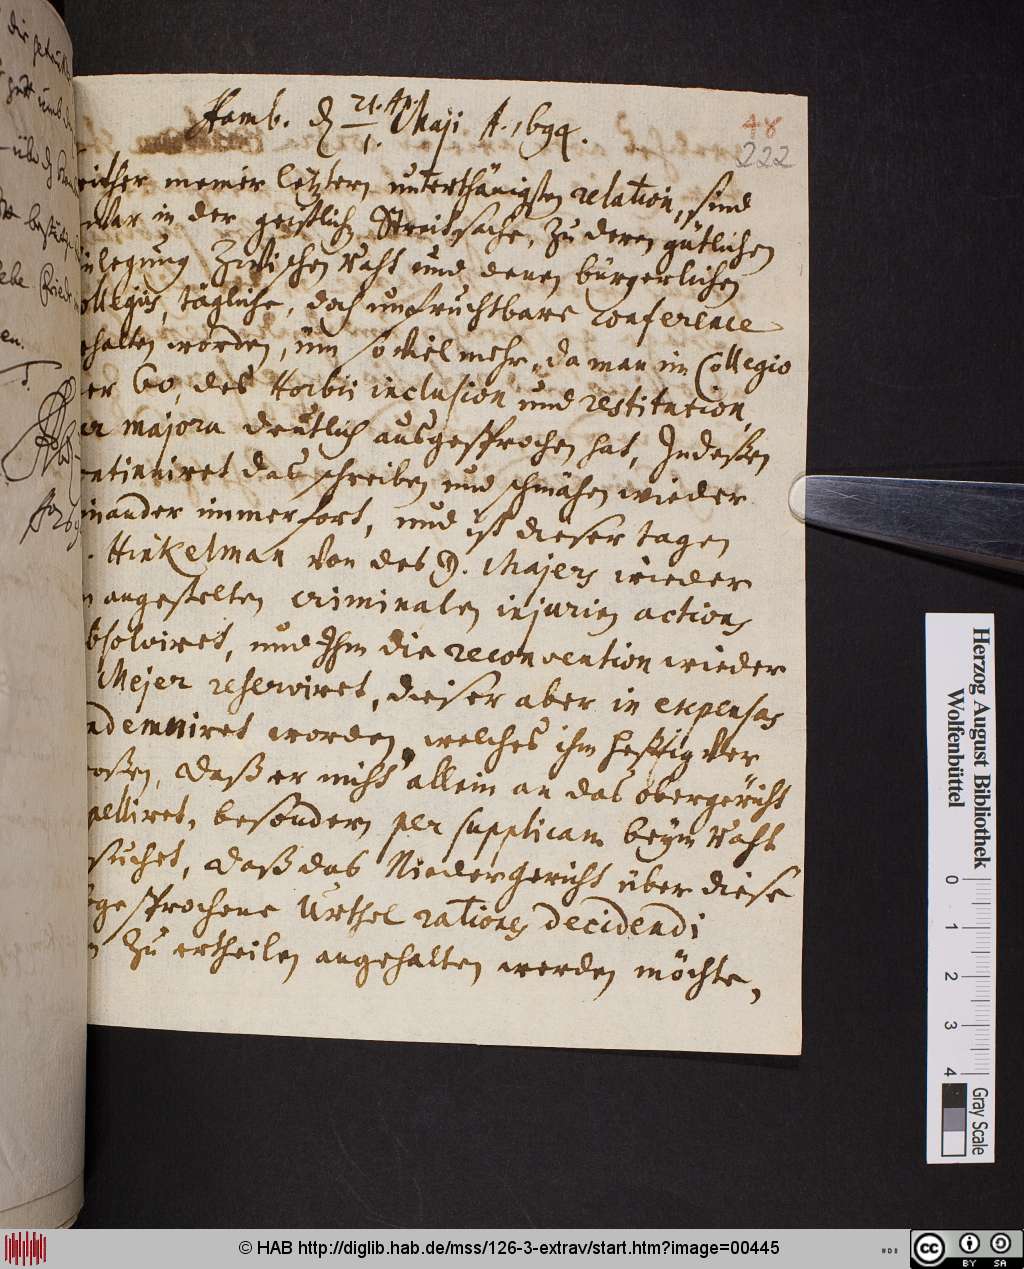 Hamb. d 21. Ap. / 1. Maji A. 1694.
48
222
either meiner letztern unterthänigsten relation, sind
war in der geistlichen Streitsache, zu deren gütlichen
inlegung zwischen Raht und denen bürgerlichen
ollegiis, tägliche, doch unfruchtbare conference
ehalten worden, üm so viel mehr, da man im Collegio
er 60, des Horbii inclusion und restitution,
er majora deutlich ausgesprochen hat, Indeßen
ontinuiret das schreiben und schmähen wieder
inander immerfort, und ist dieser tagen
. Hinkelman von des D. Majers wieder
n angestelten criminalen injurien actions
bsolviret, und Ihm die reconvention wieder
Mejer reserviret, dieser aber in expensas
ndemniret worden, welches ihm hefftig ver
oßen, daß er nicht allein an das obergericht
pelliret, besondern per supplicam beym Raht
suchet, daß das Niedergericht über diese
bgesprochene Urthel rationes decidendi
n zu ertheilen angehalten werden möchte,
Herzog August Bibliothek
Wolfenbüttel
0 1 2 3 4
Gray Scale
© HAB http://diglib.hab.de/mss/126-3-extrav/start.htm?image=00445
cc BY SA